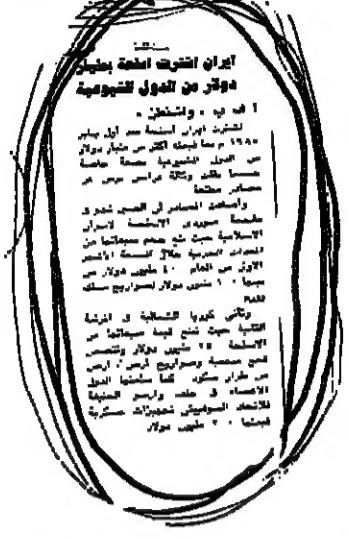 ايران اشترت اسلحة بمليار
دولار من الدول الشيوعية
أ ف ب - واشنطن -
اشترت ايران اسلحة منذ أول يناير
١٩٨٥ م بما قيمته أكثر من مليار دولار
من الدول الشيوعية بصفة خاصة
حسبما نقلت وكالة فرانس برس عن
مصادر مطلعة
وأضافت المصادر أن الصين تبدو في
مقدمة موردي الاسلحة لايران
الاسلامية حيث بلغ حجم مبيعاتها من
المعدات الحربية خلال الستة الأشهر
الأولى من العام مليون دولار من
بينها مليون دولار لصواريخ
وتأتي كوريا الشمالية في المرتبة
الثانية حيث تبلغ قيمة مبيعاتها من
الاسلحة مليون دولار وتتضمن
قطع مدفعية وصواريخ أرض / أرض
من طراز سكود كما سلمتها الدول
الاعضاء في حلف وارسو الحليفة
للاتحاد السوفيتي تجهيزات عسكرية
قيمتها مليون دولار